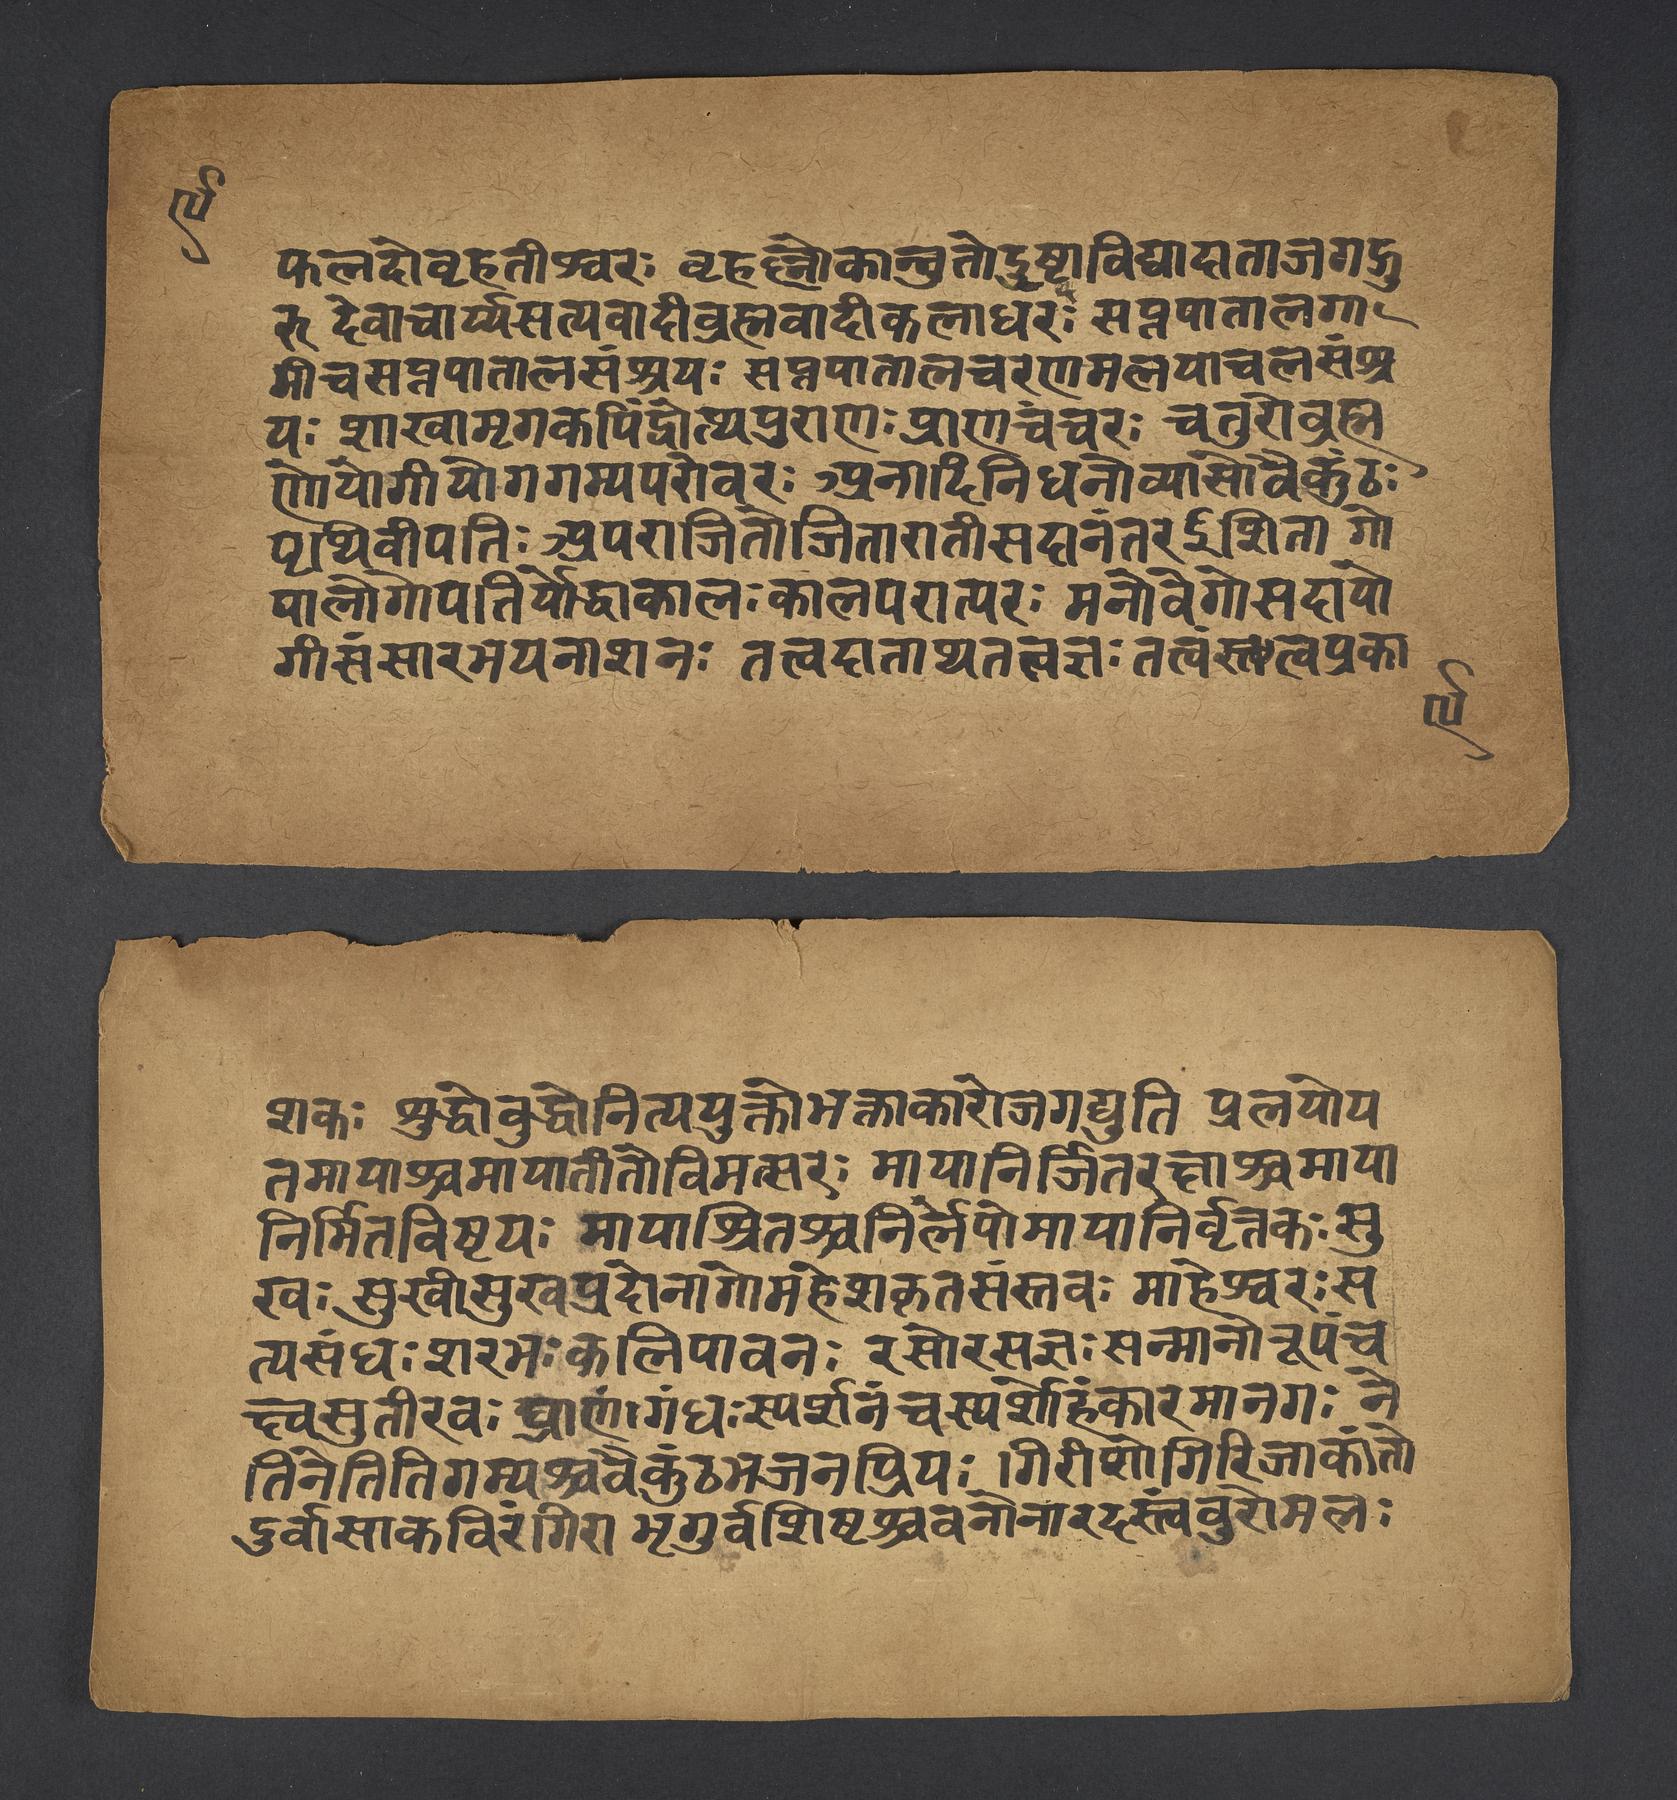 फलदोवृहतीश्वरः वृहल्लोकान्नुतोदुष्टाविद्यादाताजगद्गु
रु देवाचार्य्यसत्यवादीव्रह्मवादीकलाधरः सप्तपातालगा
मीचसप्तपातालसंश्रयः सप्तपातालचरणमलयाचलसंश्र
यः शाखामृगकपिंद्रोत्यपुराणः प्राणचंचरः चतुरोव्रह्म
णोयोगीयोगगम्यपरोवरः अनादिनिधनोव्यासोवैकुंठः
पृथिवीपतिः अपराजितोजितारातीसदानंतरईशिता गो
पालोगोपतिर्योद्धाकालःकालपरात्परः मनोवेगोसदायो
गीसंसारभयनाशनः तत्वदाताथतत्वज्ञःतत्वंस्तत्वप्रका
शकः शुद्धोवुद्धोनित्ययुक्तोभक्ताकारोजगद्युति प्रलयोय
तमायाश्वमायातीतोविमत्सरः मायानिर्जितरक्षाश्वमाया
निर्मितविष्टयः मायाश्रितश्वनिर्लेपोमायानिर्वृतकःसु
खः सुखीसुखप्रदोनागोमहेशकृतसंस्तवः माहेश्वरःस
त्यसंधःशरभःकलिपावनः रसोरसज्ञःसन्मानोरूपंच
क्ष्वसुतीरवः घ्राणंगंधःस्पर्शनंचस्पर्शोहंकारमानगः ने
तिनेतितिगम्यश्ववैकुंठभजनप्रियः गिरीशोगिरिजाकांतो
दुर्वासाकविरंगिरा भृगुर्वशिष्टश्ववनोनारदस्त्वंवुरोमलः